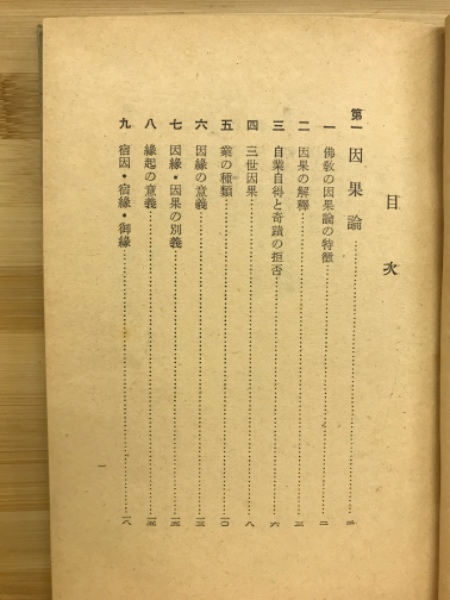 目次
第一 因果論
一 佛敎の因果論の特徵……二
二 因果の解釋……三
三 自業自得と奇蹟の拒否……六
四 三世因果……八
五 業の種類……一〇
六 因緣の意義……一三
七 因緣・因果の別義……一五
八 緣起の意義……一五
九 宿因・宿緣・御緣……一八
一